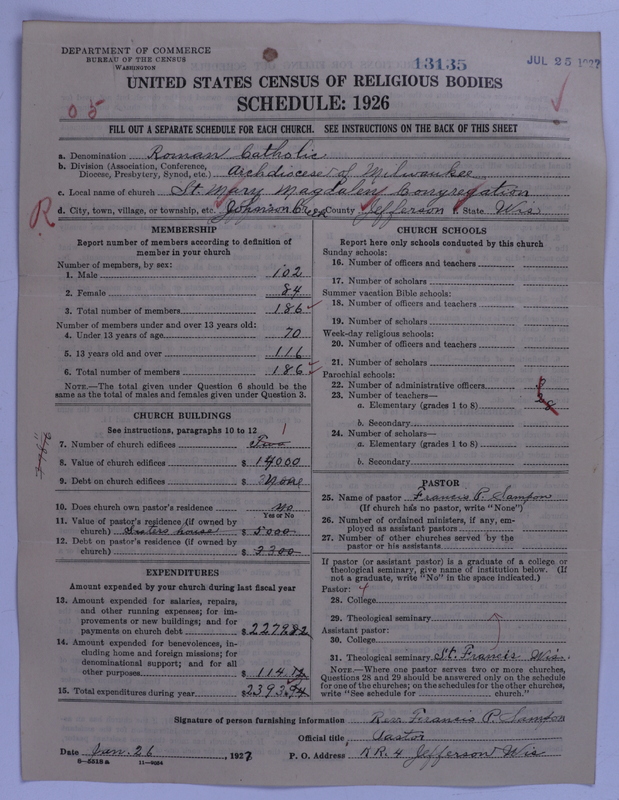 DEPARTMENT OF COMMERCE
BUREAU OF THE CENSUS
WASHINGTON
13135
JUL 25 192?
UNITED STATES CENSUS OF RELIGIOUS BODIES
SCHEDULE: 1926
0 5
FILL OUT A SEPARATE SCHEDULE FOR EACH CHURCH. SEE INSTRUCTIONS ON THE BACK OF THIS SHEET
a. Denomination Roman Catholic
b. Division (Association, Conference,
Diocese, Presbytery, Synod, etc.) Archdiocese of Milwaukee
c. Local name of church St. Mary Magdalen Congregation
R
d. City, town, village, or township, etc. Johnson Creek County Jefferson f. State Wis
MEMBERSHIP
Report number of members according to definition of
member in your church
Number of members, by sex:
1. Male 102
2. Female 84
3. Total number of members 186
Number of members under and over 13 years old:
4. Under 13 years of age 70
5. 13 years old and over 116
6. Total number of members 186
NOTE.—The total given under Question 6 should be the
same as the total of males and females given under Question 3.
CHURCH BUILDINGS
See instructions, paragraphs 10 to 12 1
7. Number of church edifices Two
8. Value of church edifices $ 14000
9. Debt on church edifices $ None
10. Does church own pastor's residence no
Yes or No
11. Value of pastor's residence (if owned by
church) Sisters house $ 5000
12. Debt on pastor's residence (if owned by
church) $ 3300
EXPENDITURES
Amount expended by your church during last fiscal year
13. Amount expended for salaries, repairs,
and other running expenses; for im-
provements or new buildings; and for
payments on church debt $ 2279.82
14. Amount expended for benevolences, in-
cluding home and foreign missions; for
denominational support; and for all
other purposes $ 114.12
15. Total expenditures during year $ 2393.94
CHURCH SCHOOLS
Report here only schools conducted by this church
Sunday schools:
16. Number of officers and teachers
17. Number of scholars
Summer vacation Bible schools:
18. Number of officers and teachers
19. Number of scholars
Week-day religious schools:
20. Number of officers and teachers
21. Number of scholars
Parochial schools:
22. Number of administrative officers
23. Number of teachers—
a. Elementary (grades 1 to 8)
b. Secondary
24. Number of scholars—
a. Elementary (grades 1 to 8)
b. Secondary
PASTOR
25. Name of pastor Francis P. Sampon
(If church has no pastor, write "None")
26. Number of ordained ministers, if any, em-
ployed as assistant pastors
27. Number of other churches served by the
pastor or his assistants
If pastor (or assistant pastor) is a graduate of a college or
theological seminary, give name of institution below. (If
not a graduate, write "No" in the space indicated.)
Pastor:
28. College
29. Theological seminary
Assistant pastor:
30. College
31. Theological seminary St. Francis Wis.
NOTE.—Where one pastor serves two or more churches,
Questions 28 and 29 should be answered only on the schedule
for one of the churches; on the schedules for the other churches,
write "See schedule for church."
Signature of person furnishing information Rev. Francis P. Sampon
Official title Pastor
Date Jun. 26, 1927
P. O. Address R R. 4 Jefferson Wis
8—5518a 11—9054